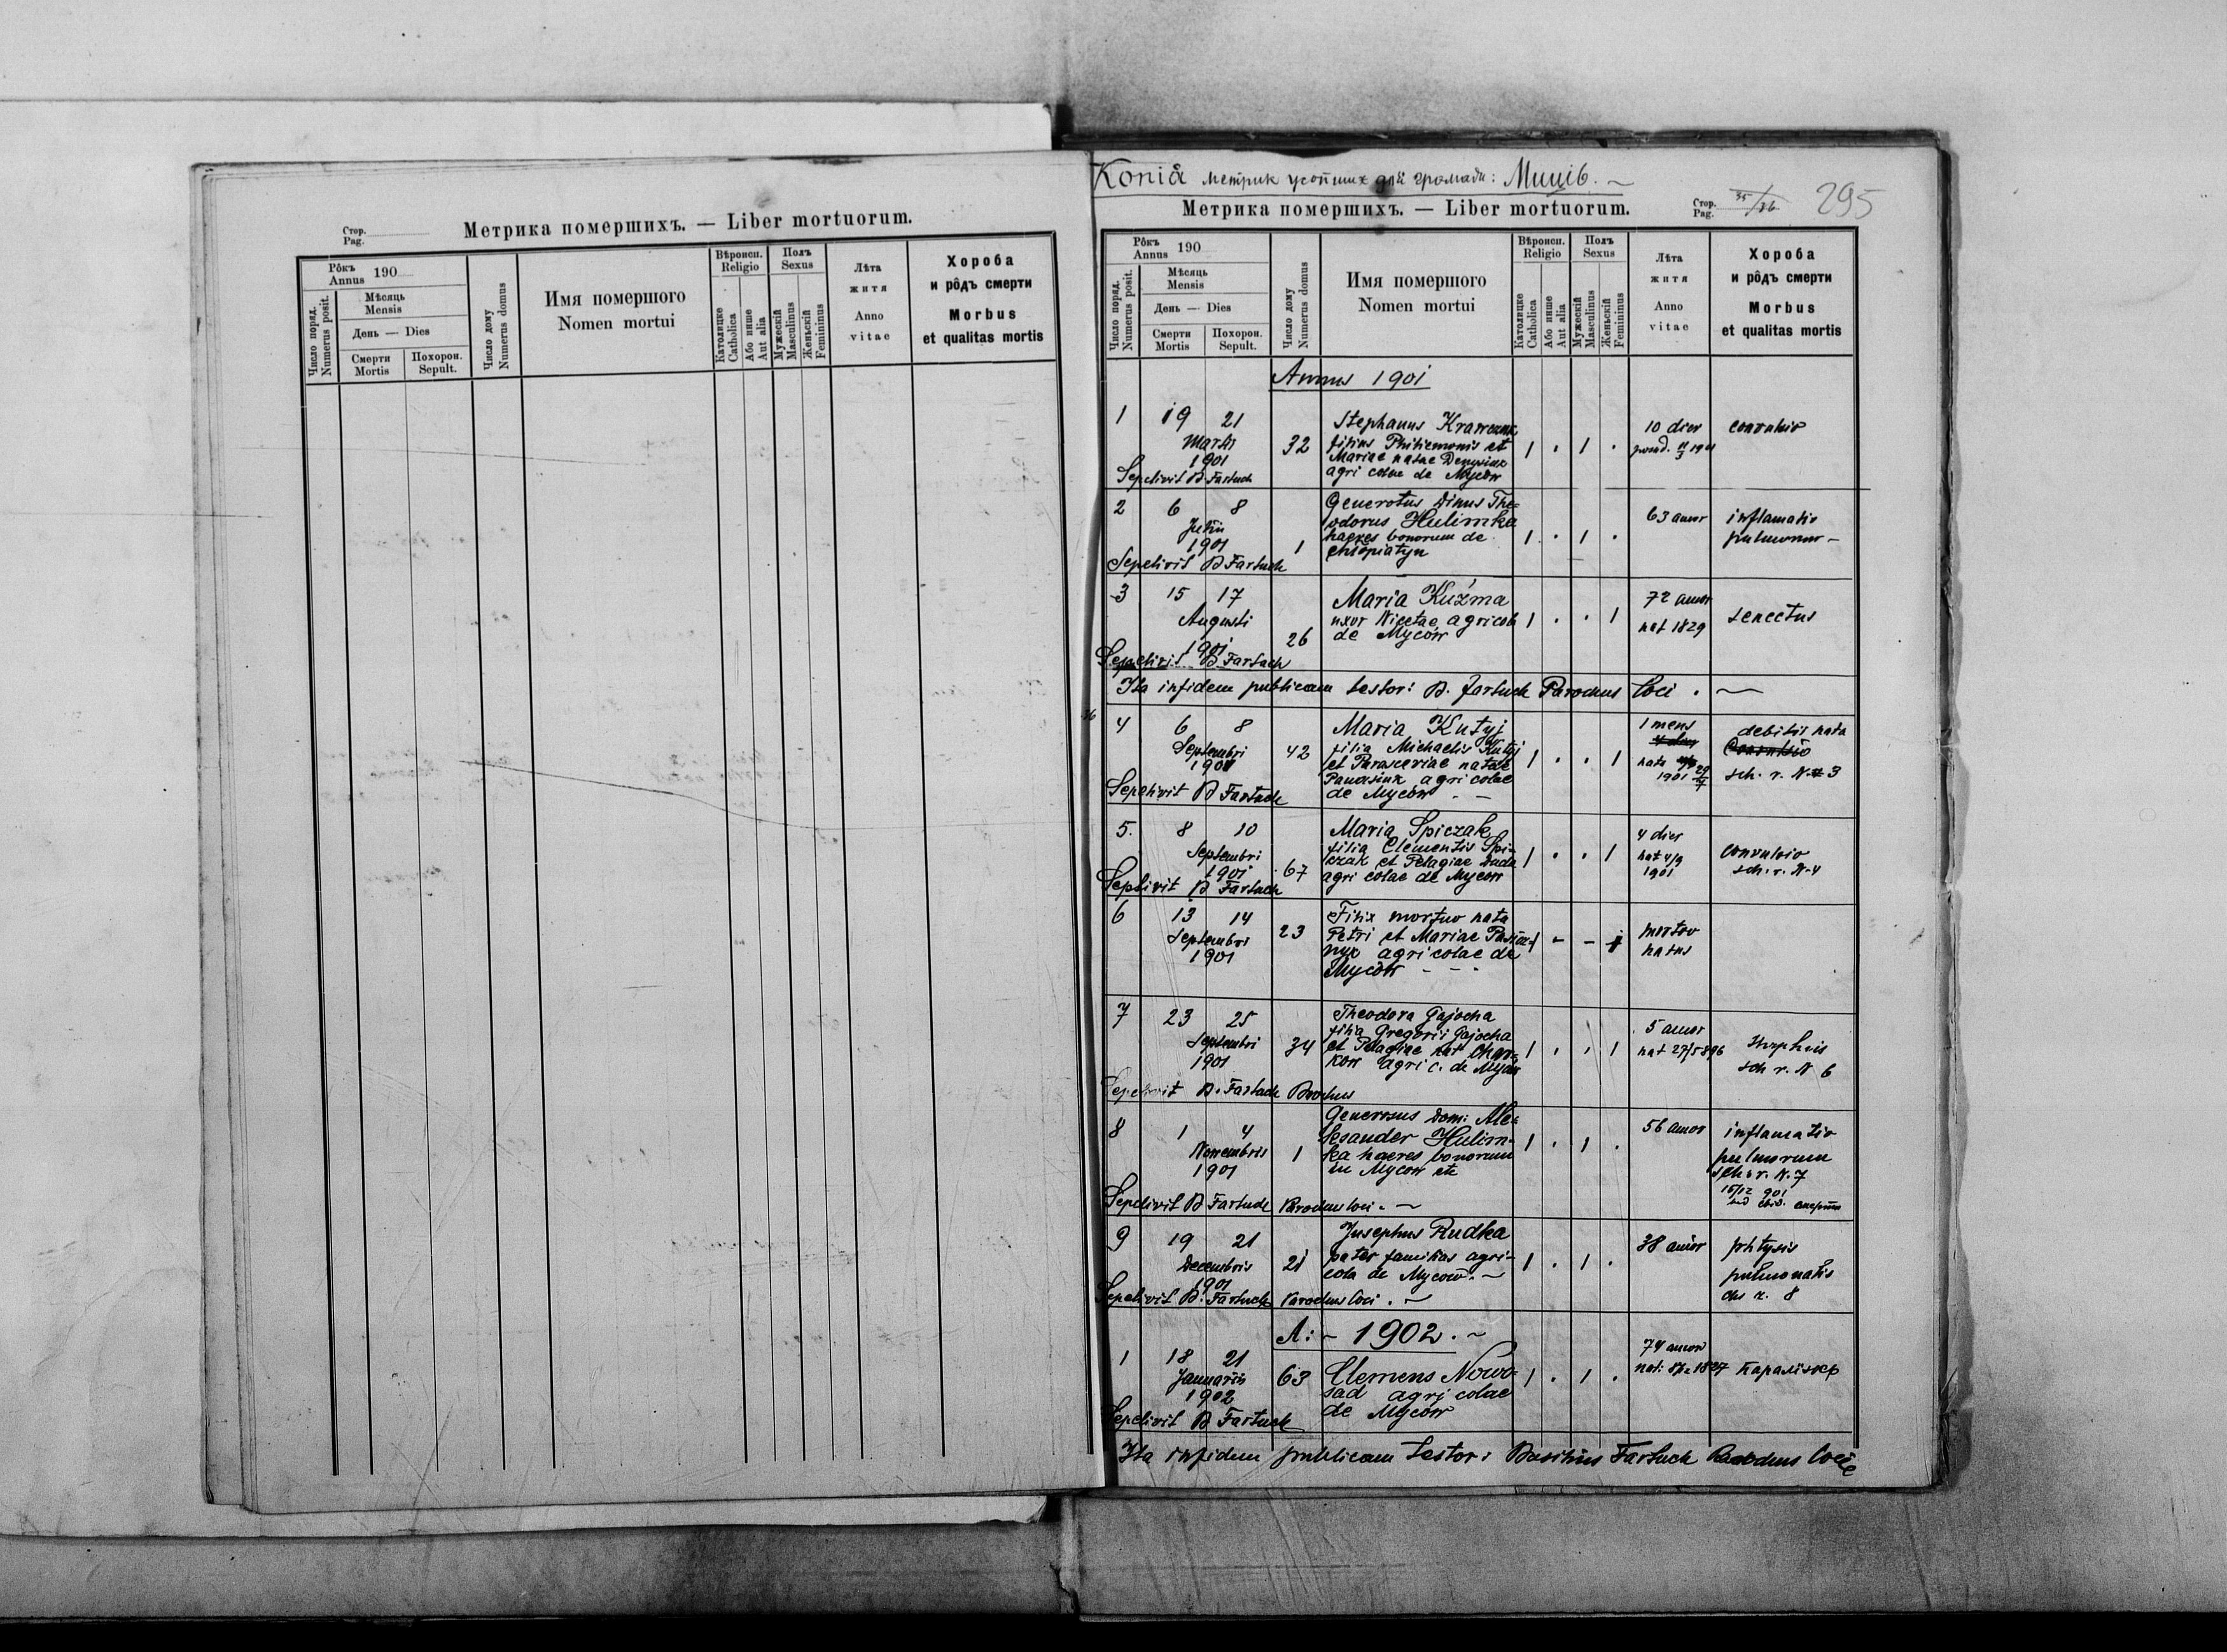 Стор.
Pag.
Метрика помершихъ. — Liber mortuorum.
Рôкъ
Annus 190
Число поряд.
Numerus posit.
Мѣсяць
Mensis
День — Dies
Смерти
Mortis
Похорон.
Sepult.
Число дому
Numerus domus
Имя помершого
Nomen mortui
Вѣроисп.
Religio
Католицке
Catholica
Або инше
Aut alia
Полъ
Sexus
Мужескій
Masculinus
Женьскій
Femininus
Лѣта
житя
Anno
vitae
Хороба
и рôдъ смерти
Morbus
et qualitas mortis
Копія метрик усопших для громади: Миців. ~
Метрика помершихъ. — Liber mortuorum.
Стор.
Pag.
35/36
295
Рôкъ
Annus 190
Число поряд.
Numerus posit.
Мѣсяць
Mensis
День — Dies
Смерти
Mortis
Похорон.
Sepult.
Число дому
Numerus domus
Имя помершого
Nomen mortui
Вѣроисп.
Religio
Католицке
Catholica
Або инше
Aut alia
Полъ
Sexus
Мужескій
Masculinus
Женьскій
Femininus
Лѣта
житя
Anno
vitae
Хороба
и рôдъ смерти
Morbus
et qualitas mortis
Annus 1901
1 19 21 Martii 1901 32
Stephanus Krawczuk
filius Philiemonis et
Mariae natae Denysiuk
agricolae de Mycôw
1 . 1 .
10 dier
convulsio
Sepelivit B Fartuch
2 6 8 Julii 1901 1
Generosus Dinus The=
odorus Hulimka
haeres bonorum de
Chłopiatyn
1 . 1 .
63 annor
inflamatio
pulmonor –
Sepelivit B Fartuch
3 15 17 Augusti 1901 26
Maria Kuźma
uxor Nicetae agricol
de Mycôw
1 . . 1
72 annor
nat 1829
senectus
Sepelivit B Fartuch
Ita infidem publicam testor: B. Fartuch Parochus loci . ~
36
4 6 8 Septembri 1901 42
Maria Kutyj
filia Michaelis Kutyj
et Parasceviae natae
Panasiuk agricolae
de Mycôw . –
1 . . 1
1 mens
nata
1901 29/7
debilis nata
Convulsio
sch. r. N. 3
Sepelivit B Fartuch
5. 8 10 Septembri 1901 67
Maria Spiczak
filia Clementis Spi-
czak et Pelagiae Duda
agricolae de Mycow
1 . . 1
4 dier
nat 4/9
1901
convulsio
sch. r. N. 4
Seplivit B Fartuch
6 13 14 Septembri 1901 23
Filia mortuo nata
Petri et Mariae
agricolae de
Mycôw - - -
1 - - 1
mortuo
natus
7 23 25 Septembri 1901 34
Theodora Gajocha
filia Gregorii Gajocha
et Pelagiae nat Char=
kow agric. de Mycôw
1 . . 1
5 annor
nat 27/5 896
sch r. N 6
Sepelivit B. Fartuch Parochus
8 1 4 Novembris 1901 1
Generosus Dom: Ale=
ksander Hulim-
ka haeres bonorum
in Mycow etc
1 . 1 .
56 annor
inflamatio
pulmorum
sch. r. N. 7
15/12 901
Sepelivit B Fartuch Parochus loci . ~
9 19 21 Decembris 1901 21
Jusephus Rudka
pater familias agri-
cola de Mycow. ~
1 . 1 .
38 annor
phtysis
pulmonalis
r. 8
Sepelivit B. Fartuch Parochus loci . ~
A: ~ 1902 . ~
1 18 21 Januariis 1902 63
Clemens Nowo-
sad agricolae
de Mycow
1 . 1 .
74 annor
Sepelivit B Fartuch
Ita infidem publicam testor: Basilius Fartuch Parochus loci